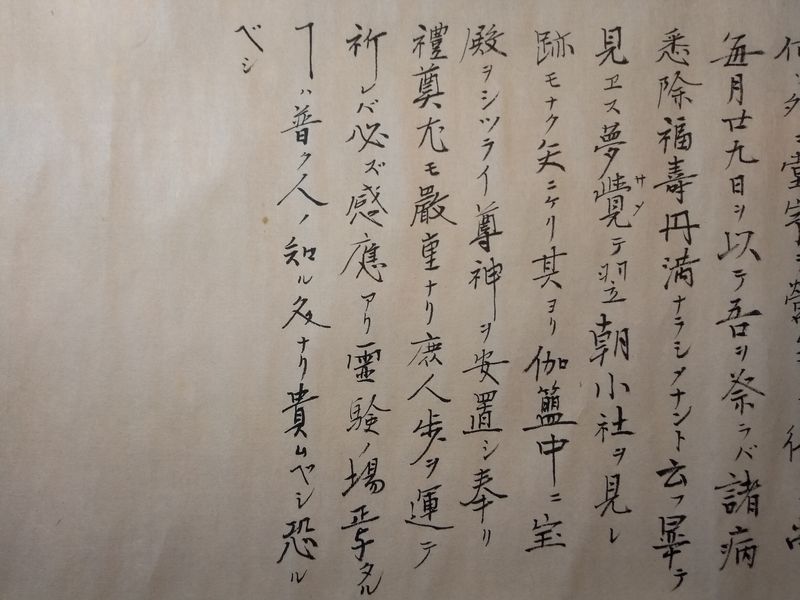 毎月廿九日ヲ以テ吾ヲ祭ラバ諸病
悉除福壽円満ナラシメナント云フ畢テ
見エス夢覺サメテ翌朝小社ヲ見レ
跡モナク矢ニケリ其ヨリ伽籃中ニ宝
殿ヲシツライ尊神ヲ安置シ奉リ
禮奠尤モ嚴重ナリ庶人歩ヲ運テ
祈レバ必ズ感應アリ霊験ノ場タル
ヿハ普ク人ノ知ル処ナリ貴ムヘシ恐ル
ベシ